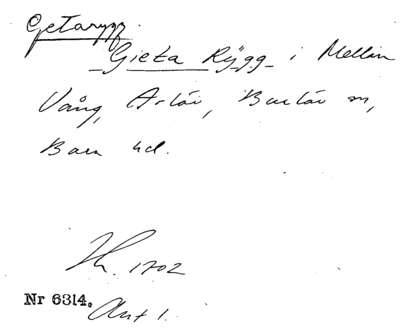 Getarygg.
Gieta Rÿgg i Mellan
Vång, Arlöv, Burlöv sn,
Bara hd.
1702
Nr 6314. Akt 1.